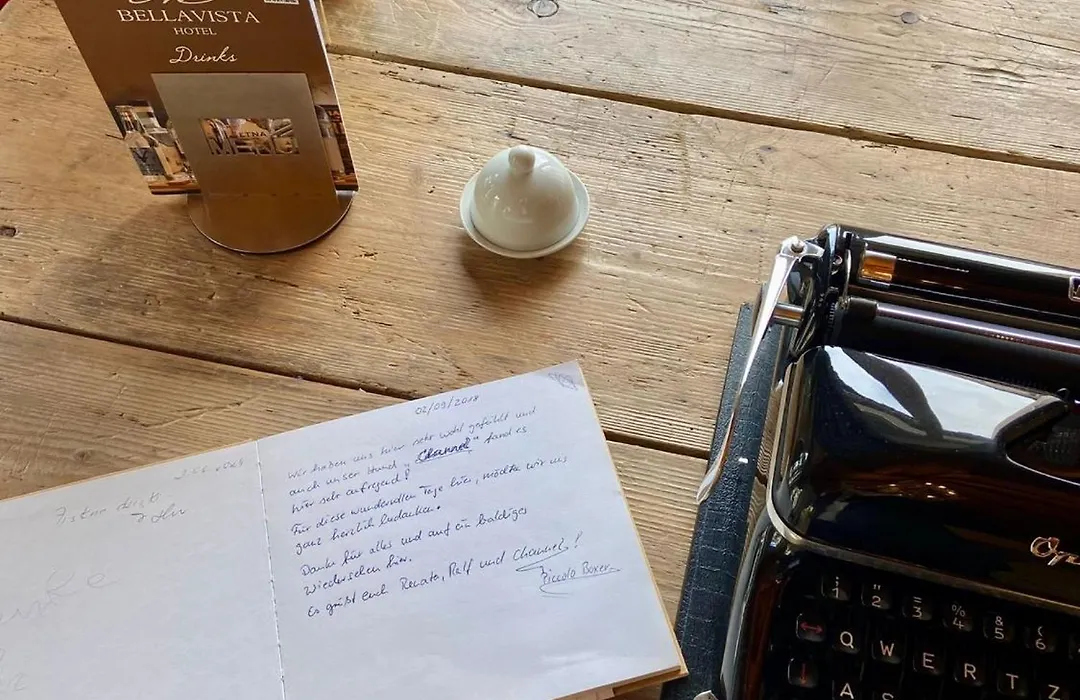 BELLAVISTA
HOTEL
Drinks
ETNA
MENÜ
02/09/2018
Wir haben uns hier sehr wohl gefühlt und
auch unser Hund „Channel“ fand es
hier sehr aufregend!
Für diese wundervollen Tage hier, möchten wir uns
ganz herzlich bedanken.
Danke für alles und auf ein baldiges
Wiedersehen hier.
Es grüßt euch Renate, Ralf und Channel!
Piccolo Boxer
Op
1 2 3 % 4 & 5 ( 6
Q W E R T Z
A S D